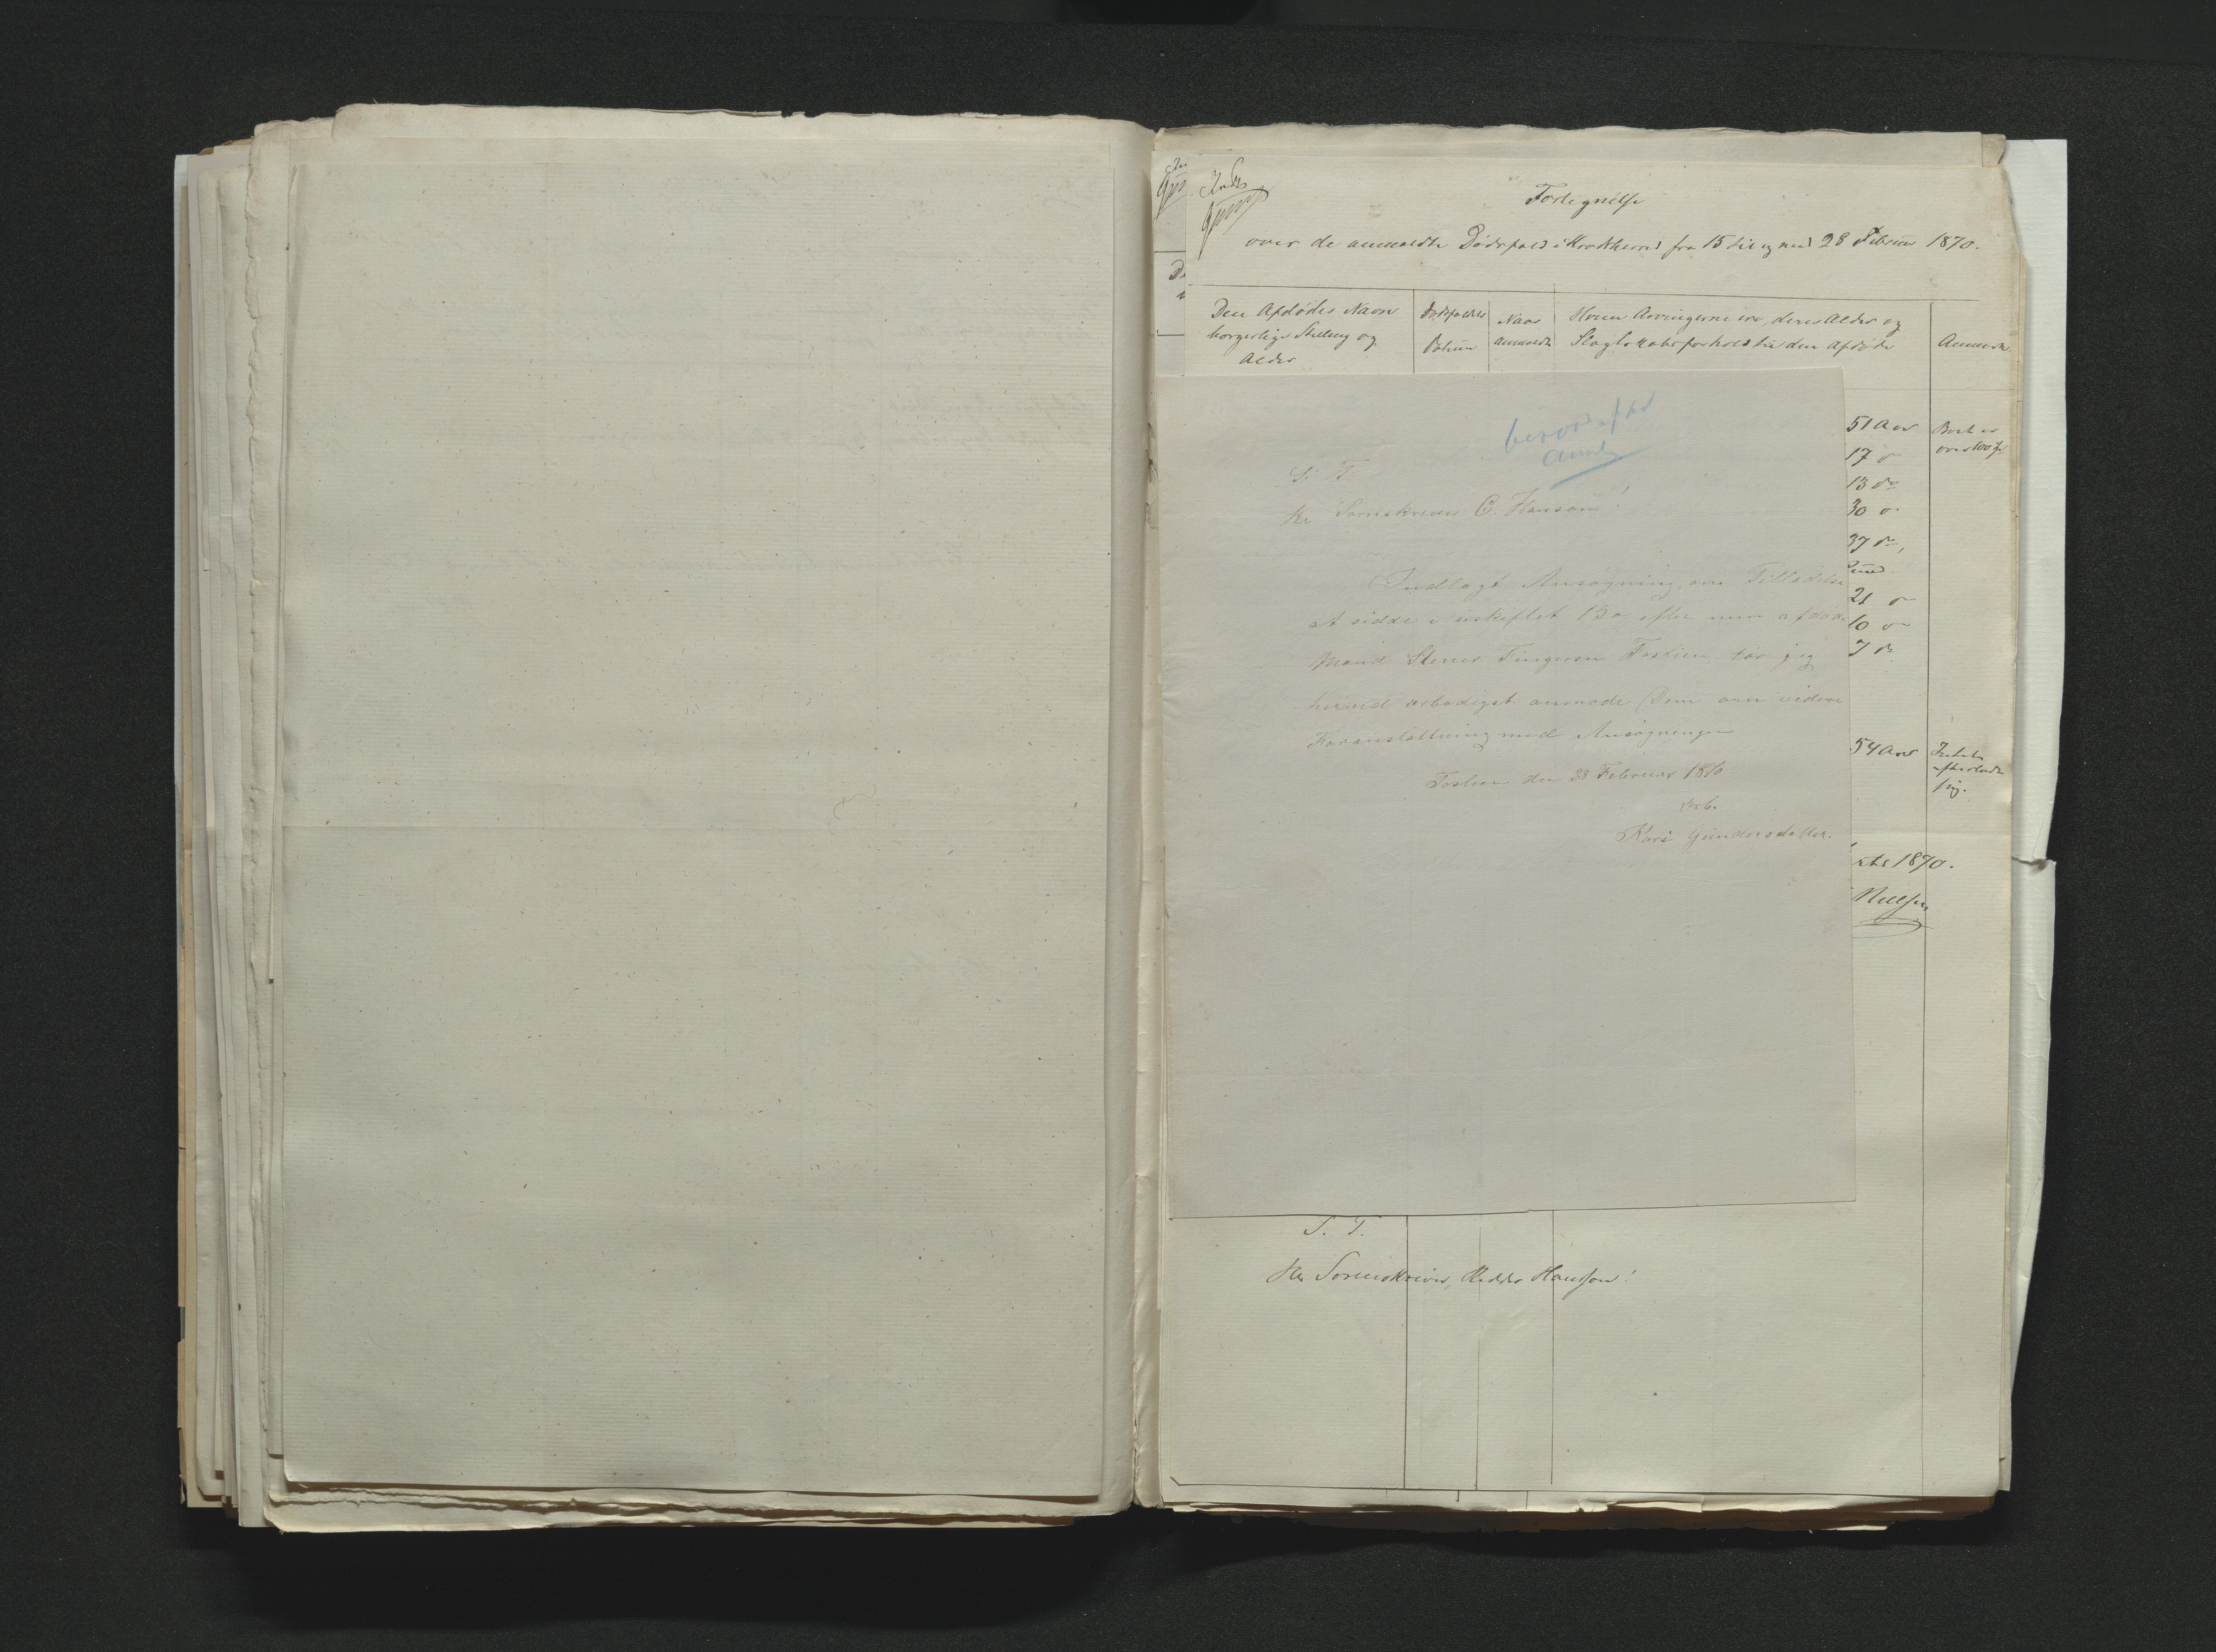 Fortegnelse
over de anmeldte Dødsfald i Krødsherred fra 15 til og med 28 Februar 1870.
Den Afdødes Navn
borgerlige Stilling og
Alder
Dødsfaldets
Datum
Naar
anmeldt
Hvem Arvingerne ere, deres Alder og
Slægtskabsforhold til den Afdøde
Anmærk.
51 Aar
17 "
13 do
30 "
37 do,
21 "
10 "
7 do
Boet er
over 100 Sp
54 Aar
Intet
efterladt
sig.
rts 1870.
Nielsen
S. T.
Hr. Sorenskriver C. Hansson!
Indlagt Ansøgning om Tilladelse
at sidde i uskiftet Bo efter min afdøde
Mand Stener Fingersen Foslien tør jeg
herved ærbødigst anmode Dem om videre
Foranstaltning med Ansøgningen
Foslien den 28 Februar 1870
ærb.
Kari Gundersdatter.
S. T.
Hr. Sorenskriver, Ridder Hansson!